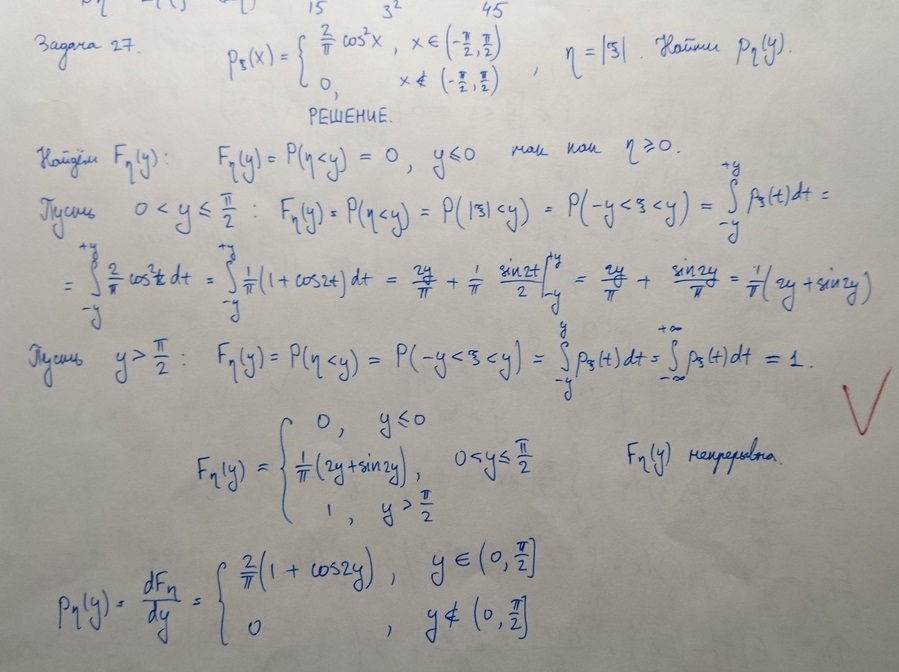 15 3² 45
Задача 27. p_ξ(x) = { 2/π cos²x, x ∈ (-π/2, π/2)
0, x ∉ (-π/2, π/2) , η = |ξ|. Найти p_η(y).
РЕШЕНИЕ.
Найдём F_η(y): F_η(y) = P(η<y) = 0, y≤0 так как η≥0.
Пусть 0 < y ≤ π/2 : F_η(y) = P(η<y) = P(|ξ|<y) = P(-y<ξ<y) = ∫_{-y}^{+y} p_ξ(t)dt =
= ∫_{-y}^{+y} 2/π cos²t dt = ∫_{-y}^{+y} 1/π (1+cos2t)dt = 2y/π + 1/π sin2t/2 |_{-y}^{+y} = 2y/π + sin2y/π = 1/π (2y+sin2y)
Пусть y > π/2 : F_η(y) = P(η<y) = P(-y<ξ<y) = ∫_{-y}^{y} p_ξ(t)dt = ∫_{-∞}^{+∞} p_ξ(t)dt = 1.
F_η(y) = { 0, y≤0
1/π (2y+sin2y), 0<y≤π/2 F_η(y) непрерывна.
1, y > π/2
p_η(y) = dF_η/dy = { 2/π (1+cos2y), y ∈ (0, π/2]
0, y ∉ (0, π/2]